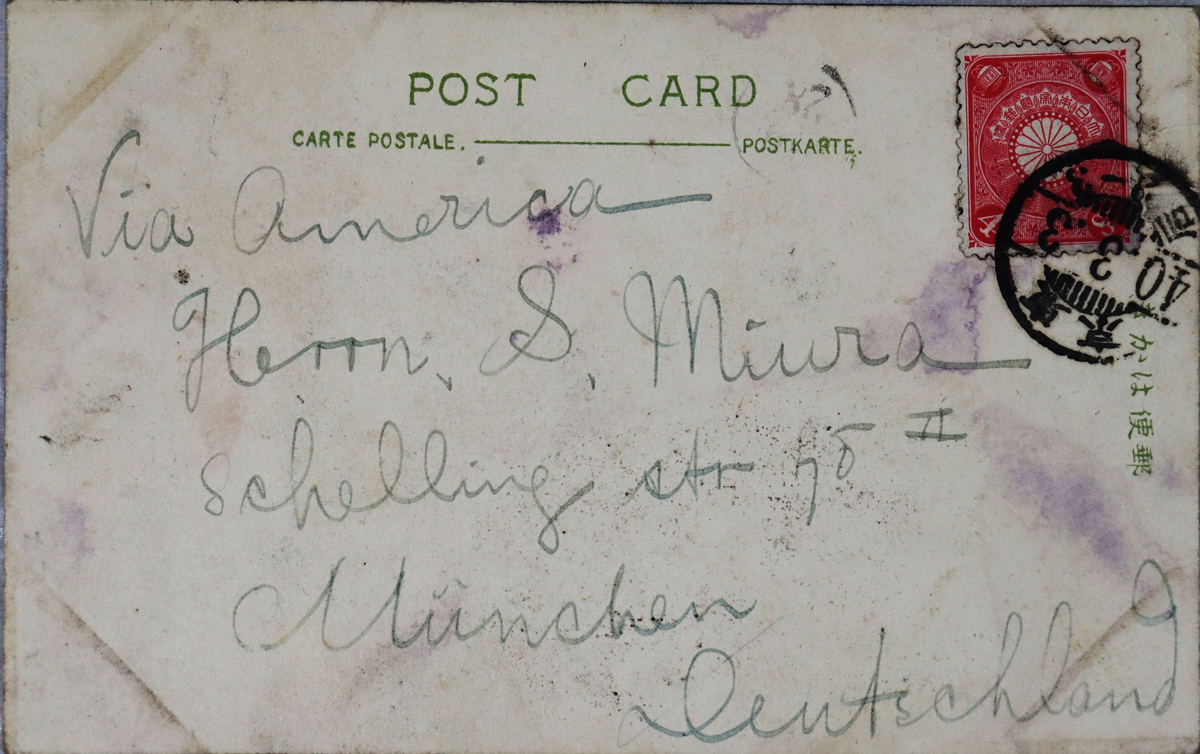 POST CARD
CARTE POSTALE. POSTKARTE.
Via America
Herrn, S. Miura
Schelling str 75 II
München
Deutschland
郵便はかき
大日本帝國郵便
4
40
3